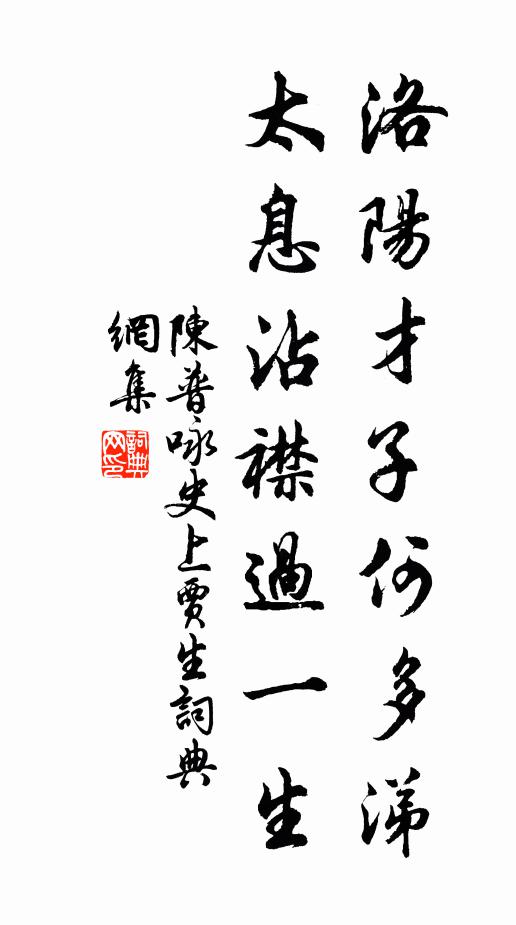 洛陽才子何多涕
太息沾襟過一生
陳普咏史上賈生詞典
網集
詞典
网印